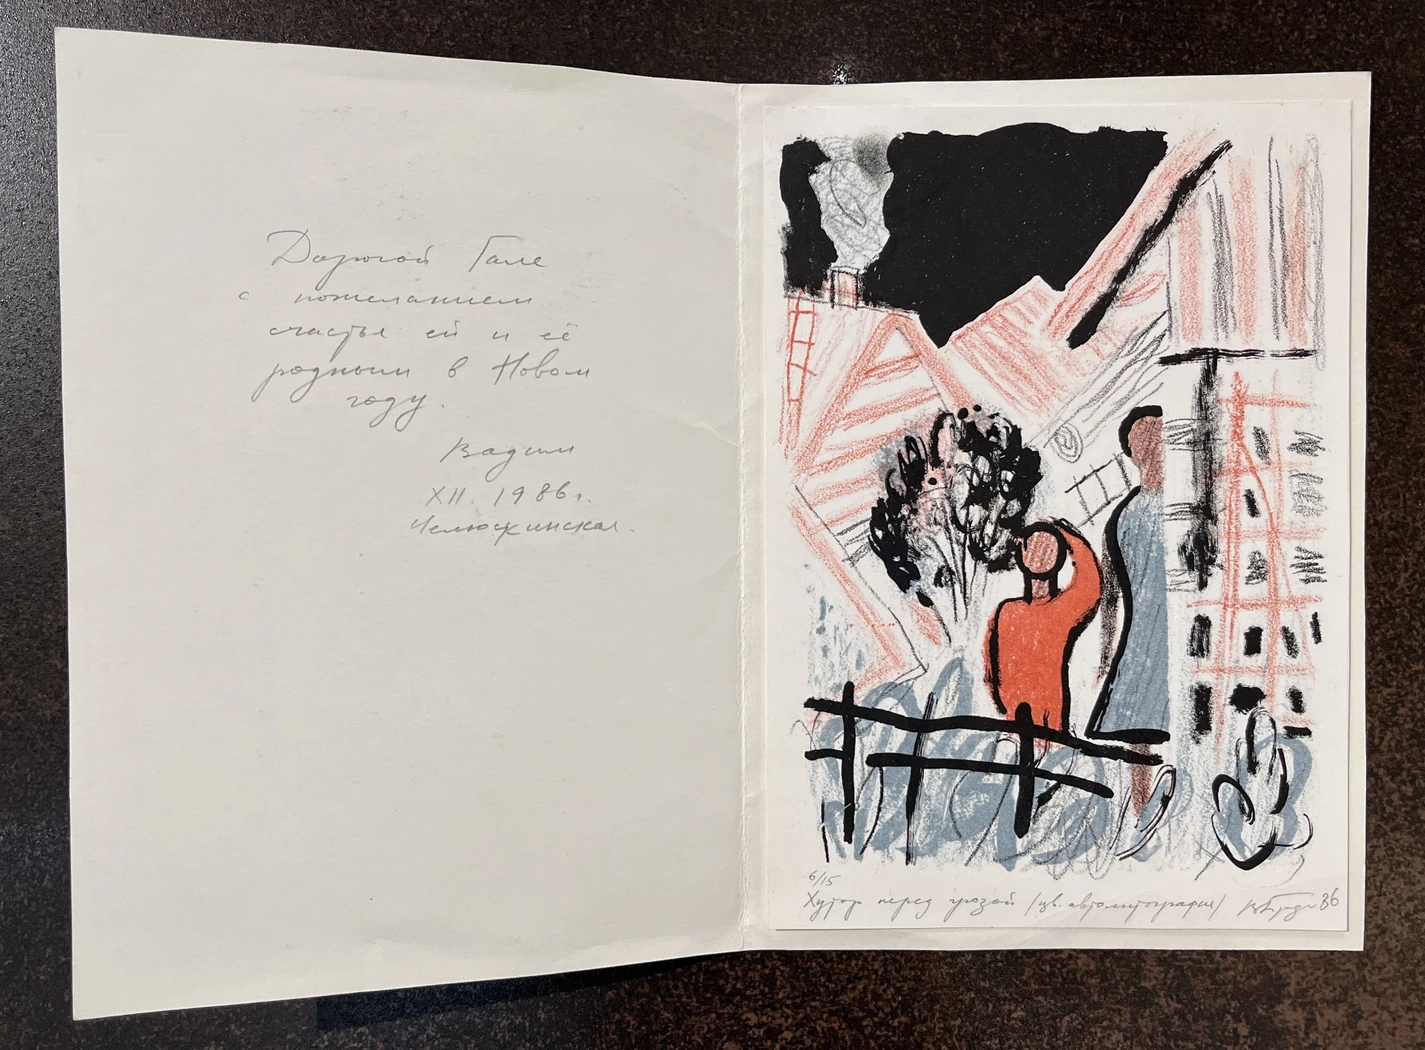 Дорогой Гале
с пожеланием
счастья ей и её
родным в Новом
году.
Вадим
XII. 1986 г.
Челюскинская.
6/15
Хутор перед грозой (цв. автолитография) 86